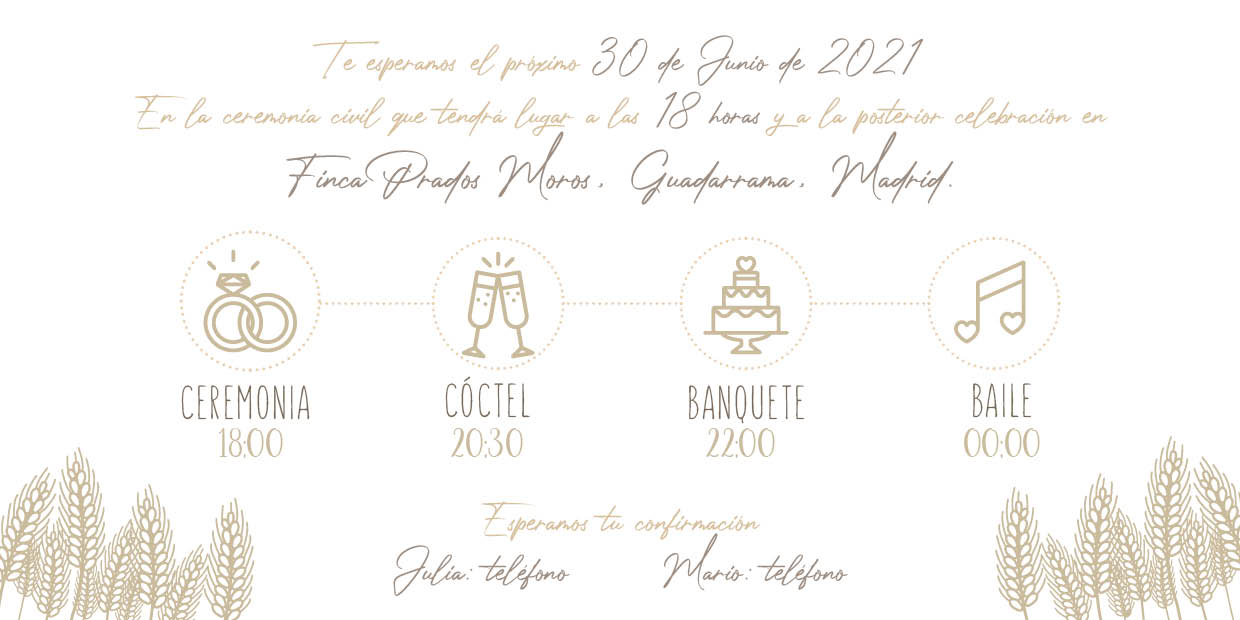 Te esperamos el próximo 30 de Junio de 2021
En la ceremonia civil que tendrá lugar a las 18 horas y a la posterior celebración en
Finca Prados Moros, Guadarrama, Madrid.
CEREMONIA CÓCTEL BANQUETE BAILE
18:00 20:30 22:00 00:00
Esperamos tu confirmación
Julia: teléfono Mario: teléfono